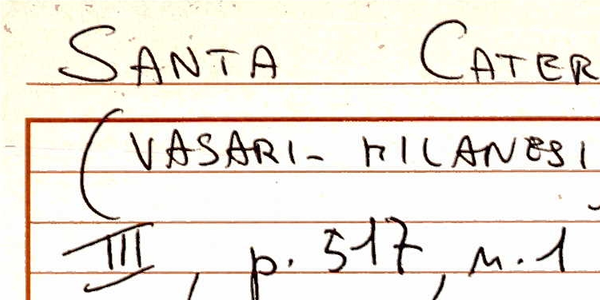 SANTA CATER
(VASARI-MILANESI,
III, p. 517, n. 1